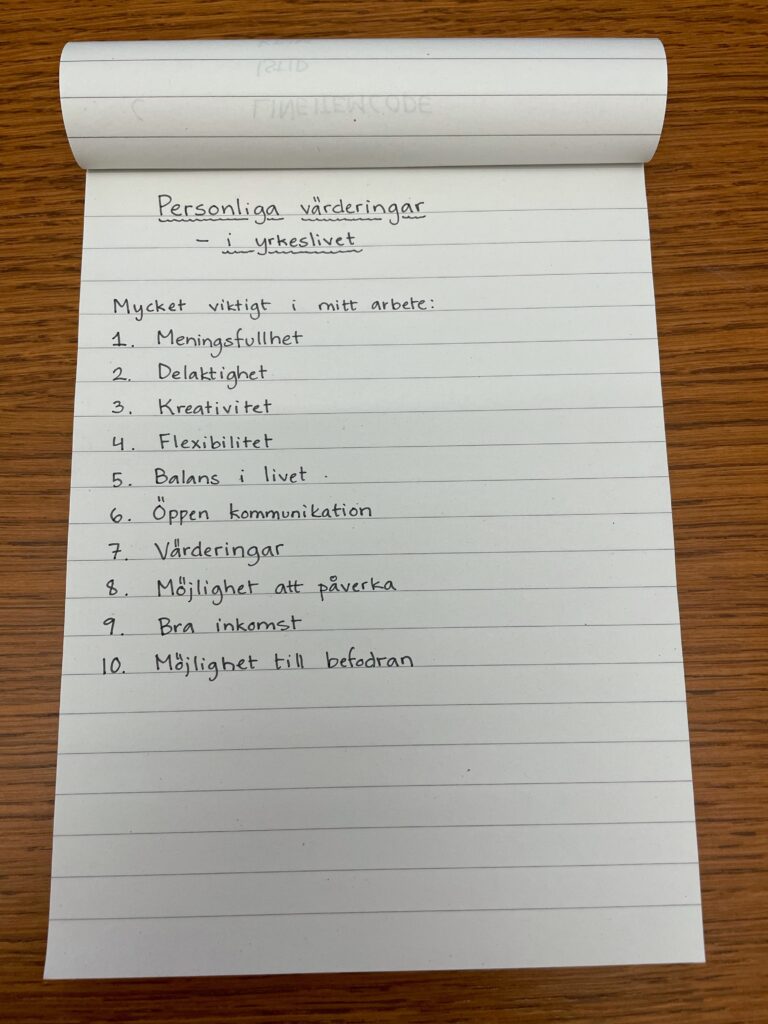 Personliga värderingar
- i yrkeslivet
Mycket viktigt i mitt arbete:
1. Meningsfullhet
2. Delaktighet
3. Kreativitet
4. Flexibilitet
5. Balans i livet
6. Öppen kommunikation
7. Värderingar
8. Möjlighet att påverka
9. Bra inkomst
10. Möjlighet till befodran